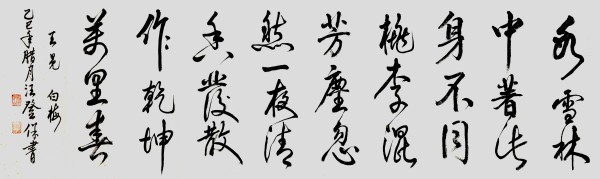 冰雪林
中著此
身不同
桃李混
芳塵忽
然一夜清
香發散
作乾坤
萬里春
王冕 白梅
巳年腊月登保書